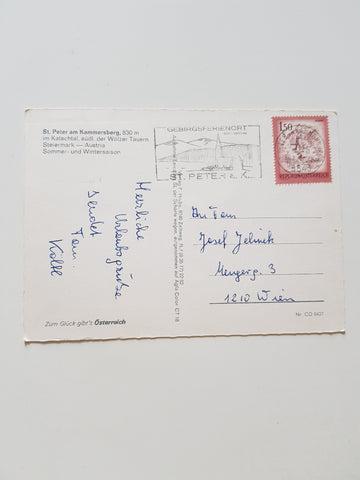 St. Peter am Kammersberg, 830 m
im Katschtal, südl. der Wölzer Tauern
Steiermark — Austria
Sommer- und Wintersaison
GEBIRGSFERIENORT
ST. PETER a. K.
1.50
REPUBLIK ÖSTERREICH
Herzliche
Urlaubsgrüße
sendet
Fam.
An Fam.
Josef Jelinek
1210 Wien
Zum Glück gibt's Österreich